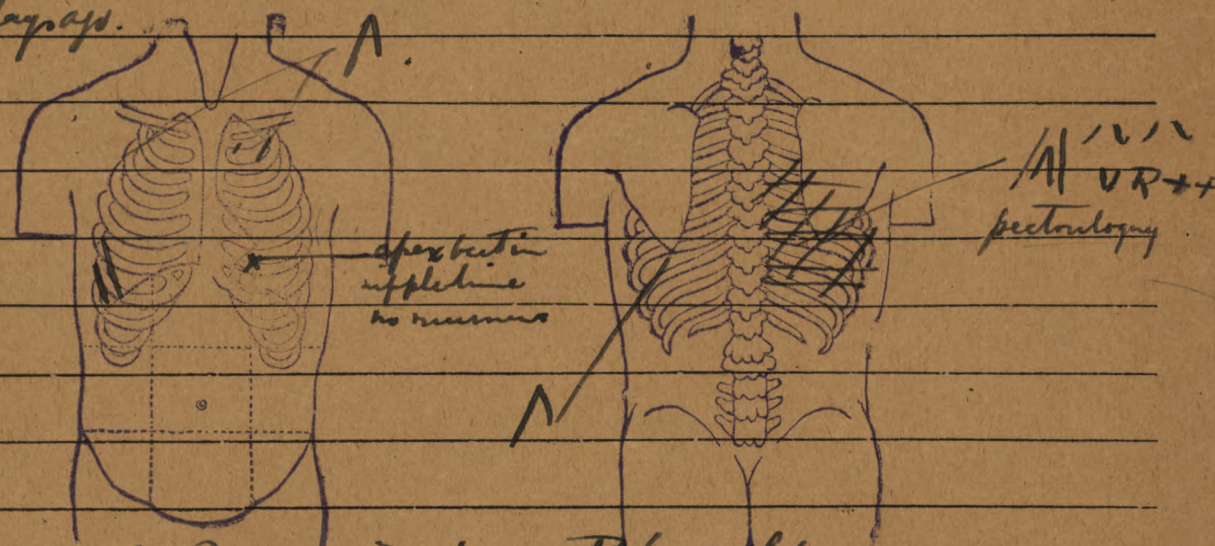 days ago.
apex beat in
nipple line
no murmurs
VR++
pectoriloquy